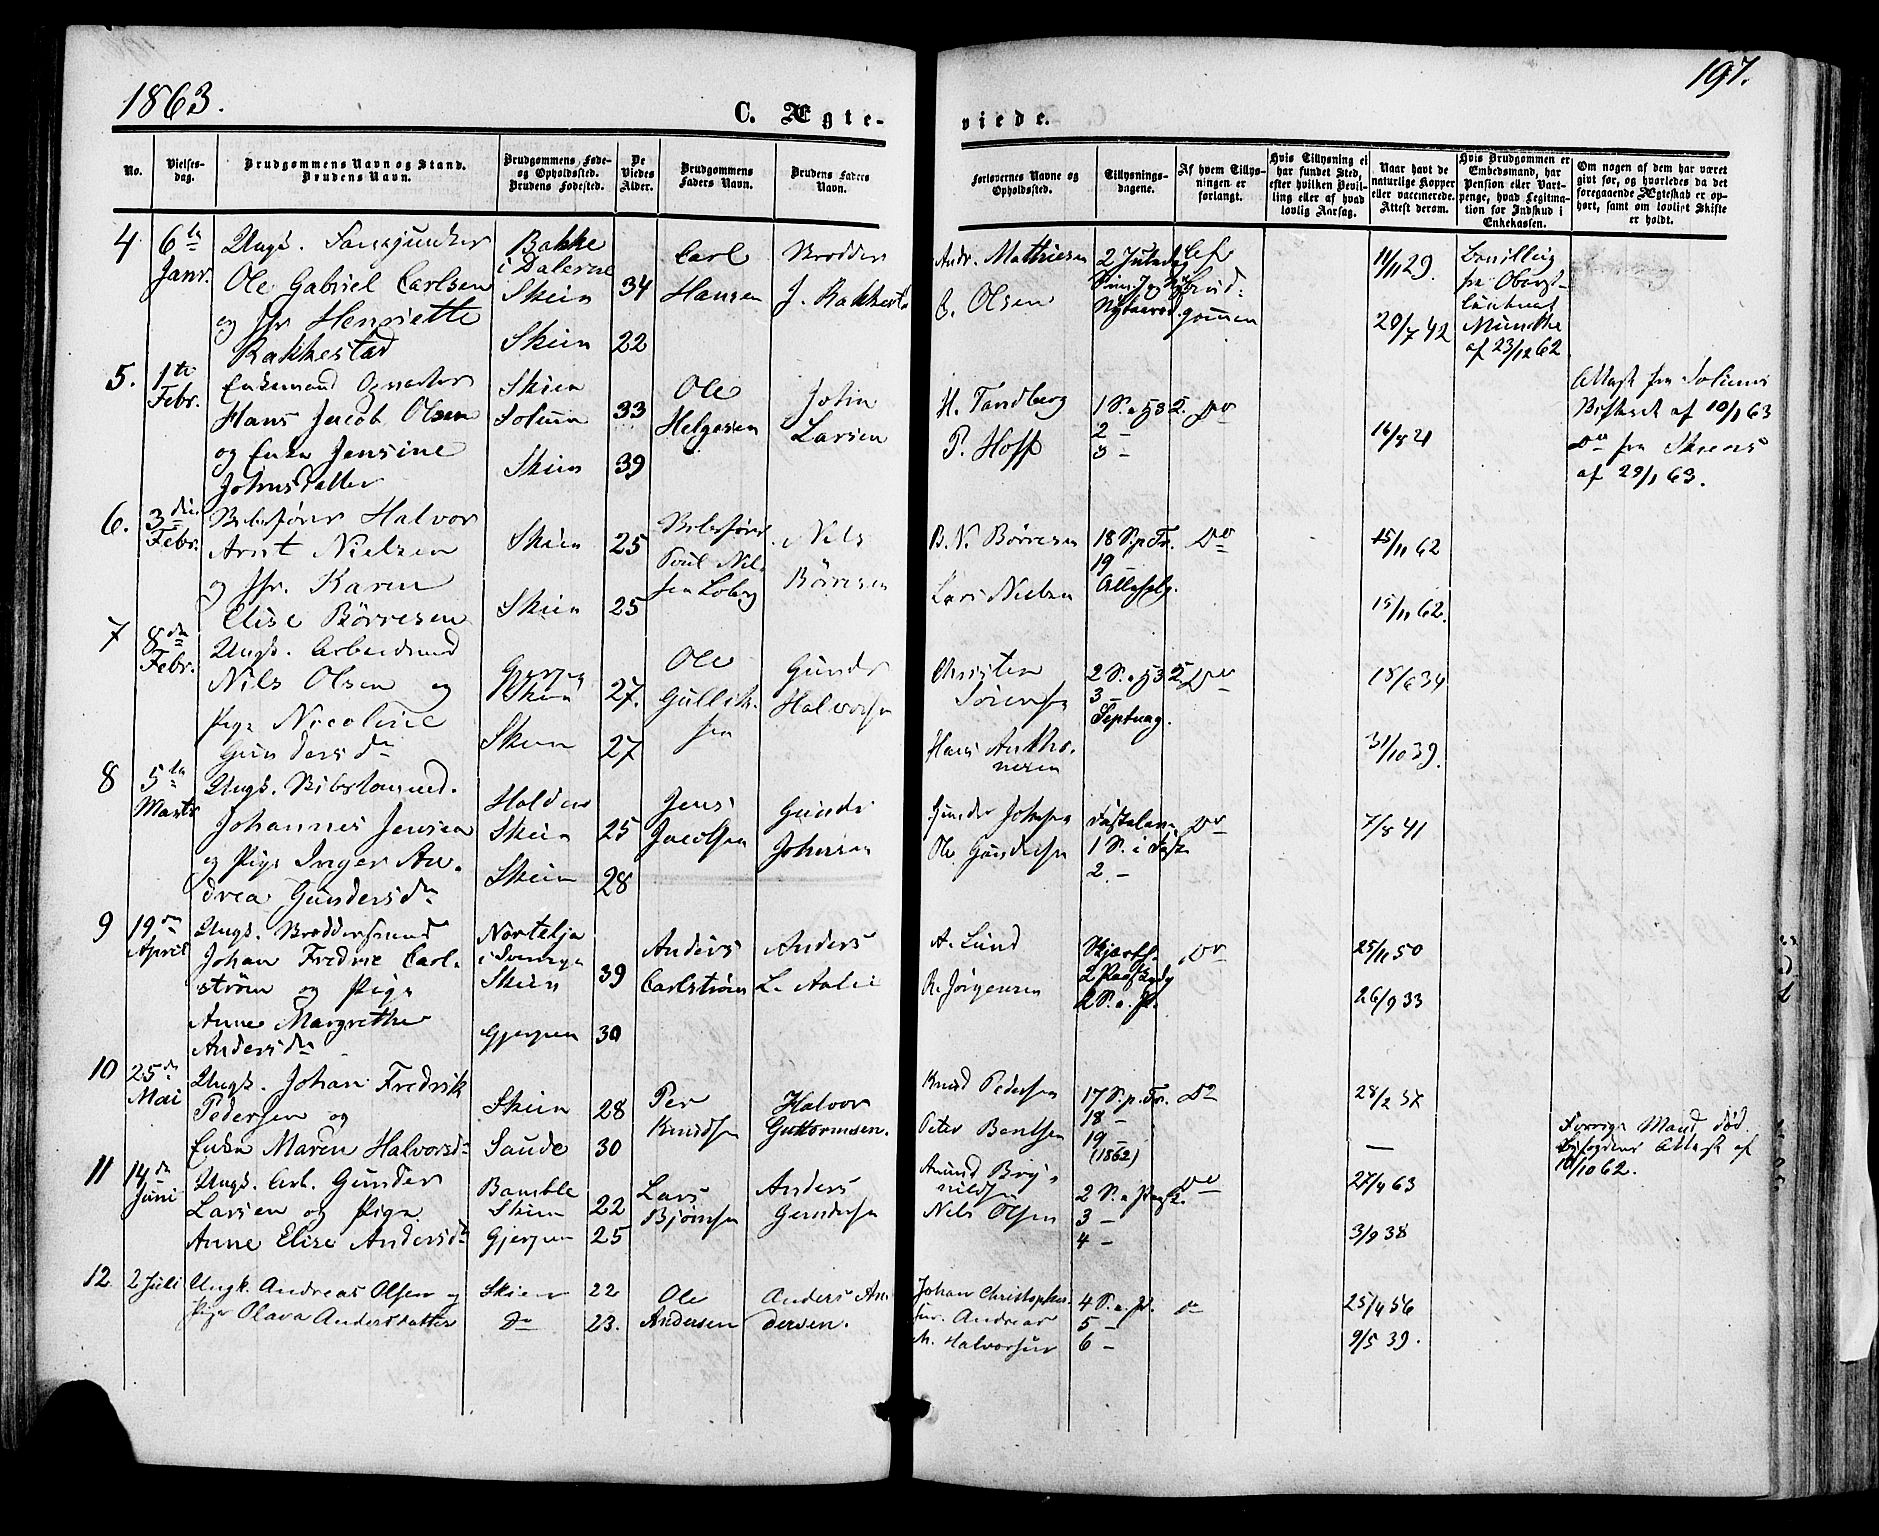 1863.
197.
C. Ægte-
viede.
No.
Vielses-
dag.
Brudgommens Navn og Stand.
Brudens Navn.
Brudgommens Føde-
og Opholdssted.
Brudens Fødested.
De
Viedes
Alder.
Brudgommens
Faders Navn.
Brudens Faders
Navn.
Forlovernes Navne og
Opholdssted.
Tillysnings-
dagene.
Af hvem Tillys-
ningen er
forlangt.
Hvis Tillysning ei
har fundet Sted,
efter hvilken Bevil-
ling eller af hvad
lovlig Aarsag.
Naar havt de
naturlige Kopper
eller vaccinerede.
Attest derom.
Hvis Brudgommen er
Embedsmand, har
Pension eller Vart-
penge, hvad Legitima-
tion for Indskud i
Enkekassen.
Om nogen af dem har været
gift før, og hvorledes da det
foregaaende Ægteskab er op-
hørt, samt om lovligt Skifte
er holdt.
4
6te
Janr.
Ungk.
Ole Gabriel Carlsen
og Jfr. Henriette
Rakkestad
Bakke
i Dalerne
Skien
Skien
34
22
Carl
Hansen
J. Rakkestad
Andr. Mathiesen
Olsen
2 Juledag
Nytaarsd.
11/11 29.
20/7 42
Bevilling
fra Oberst-
lieutnat
Munthe
af 23/12 62.
5.
1te
Febr.
Enkemand
Hans Jacob Olsen
og Enke Jensine
Johnsdatter
Skien
Solum
Skien
33
39
Ole
Helgesen
John
Larsen
H. Tandberg
P. Hoff
1 S. e. H 3 K.
2 -
3 -
Do
16/8 21
Attest fra Solums
af 10/1 63
Do fra Skiens
af 29/1 63.
6.
3die
Febr.
Halvor
Arnt Nielsen
og Jfr. Karen
Elise Börresen
Skien
Skien
25
25
Poul Niel-
sen Loberg
Nils
Börresen
B. N. Börresen
Lars Nielsen
18 S. p. Tr.
19
Allehelg.
Do
15/11 62
15/11 62.
7
8de
Febr.
Ungk. Arbeidsmd
Nils Olsen og
Pige Nicoline
Gundersdr
Gjerpen
Skien
Skien
27.
27
Ole
Gullik-
sen
Gunder
Halvorsen
Christen
Sörensen
Hans Antho-
nesen
2 S. e. H 3 K.
3 -
Septuag.
Do
18/6 34
31/10 39.
8
5te
Marts
Ungk.
Johannes Jensen
og Pige Inger An-
drea Gundersdr
Holden
Skien
Skien
25
28
Jens
Jacobsen
Gunder
Johnsen
Gunder Johnsen
Ole Gundersen
Fastelavn
1 S. i Faste
2. -
Do
7/8 41
9
19de
April
Ungk.
Johan Fredric Carl-
ström og Pige
Anne Margrethe
Andersdr
Nortelje
i Sverige
Skien
Gjerpen
39
30
Anders
Carlström
Anders
L. Aalie
A. Lund
R. Jörgensen
Skjærth.
2 Paaskedg
2 S. e. P.
Do
25/11 50
26/9 33
10
25de
Mai
Ungk. Johan Fredrik
Pedersen og
Enke Maren Halvorsdr
Skien
Saude
28
30
Per
Knudsen
Halvor
Guttormsen.
Knud Pedersen
Peter Bentsen
17 S. p. Tr.
18 -
19 -
(1862)
Do
28/2 37
-
Forrige Mand död
Attest af
10/10 62.
11
14de
Juni
Ungk. Arb. Gunder
Larsen og Pige
Anne Elise Andersdr
Bamble
Skien
Gjerpen
22
25
Lars
Björnsen
Anders
Gundersen
Amund Bry-
nildsen
Nils Olsen
2 S. e. Paask.
3 -
4 -
Do
27/4 63
3/9 38
12
2 Juli
Ungk. Andreas Olsen og
Pige Olava Andersdatter
Skien
Do
22
23.
Ole
Andersen
Anders An-
dersen.
Johan Christopher-
sen. Andreas
M. Halvorsen
4 S. e. P.
5 -
6 -
Do
25/4 56
9/5 39.